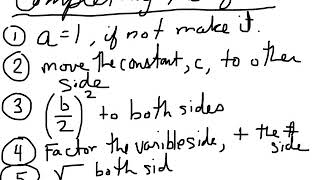 Completing
① a=1, if not make it.
② move the constant, c, to other
side
③ (b/2)² to both sides
④ Factor the varible side, + the #
side
⑤ √ both sid